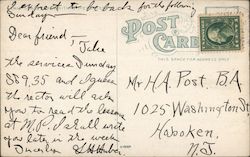 I expect to be back for the following
Sunday
POST
CARD
THIS SPACE FOR ADDRESS ONLY
Dear friend —
Take
the services Sunday
8 & 9.35 and I guess
the rector will ask
you to read the lessons
at M.P. I shall write
you later in the week.
Sincerely
Mr H A. Post. B.A
1025 Washington St
Hoboken,
N.J